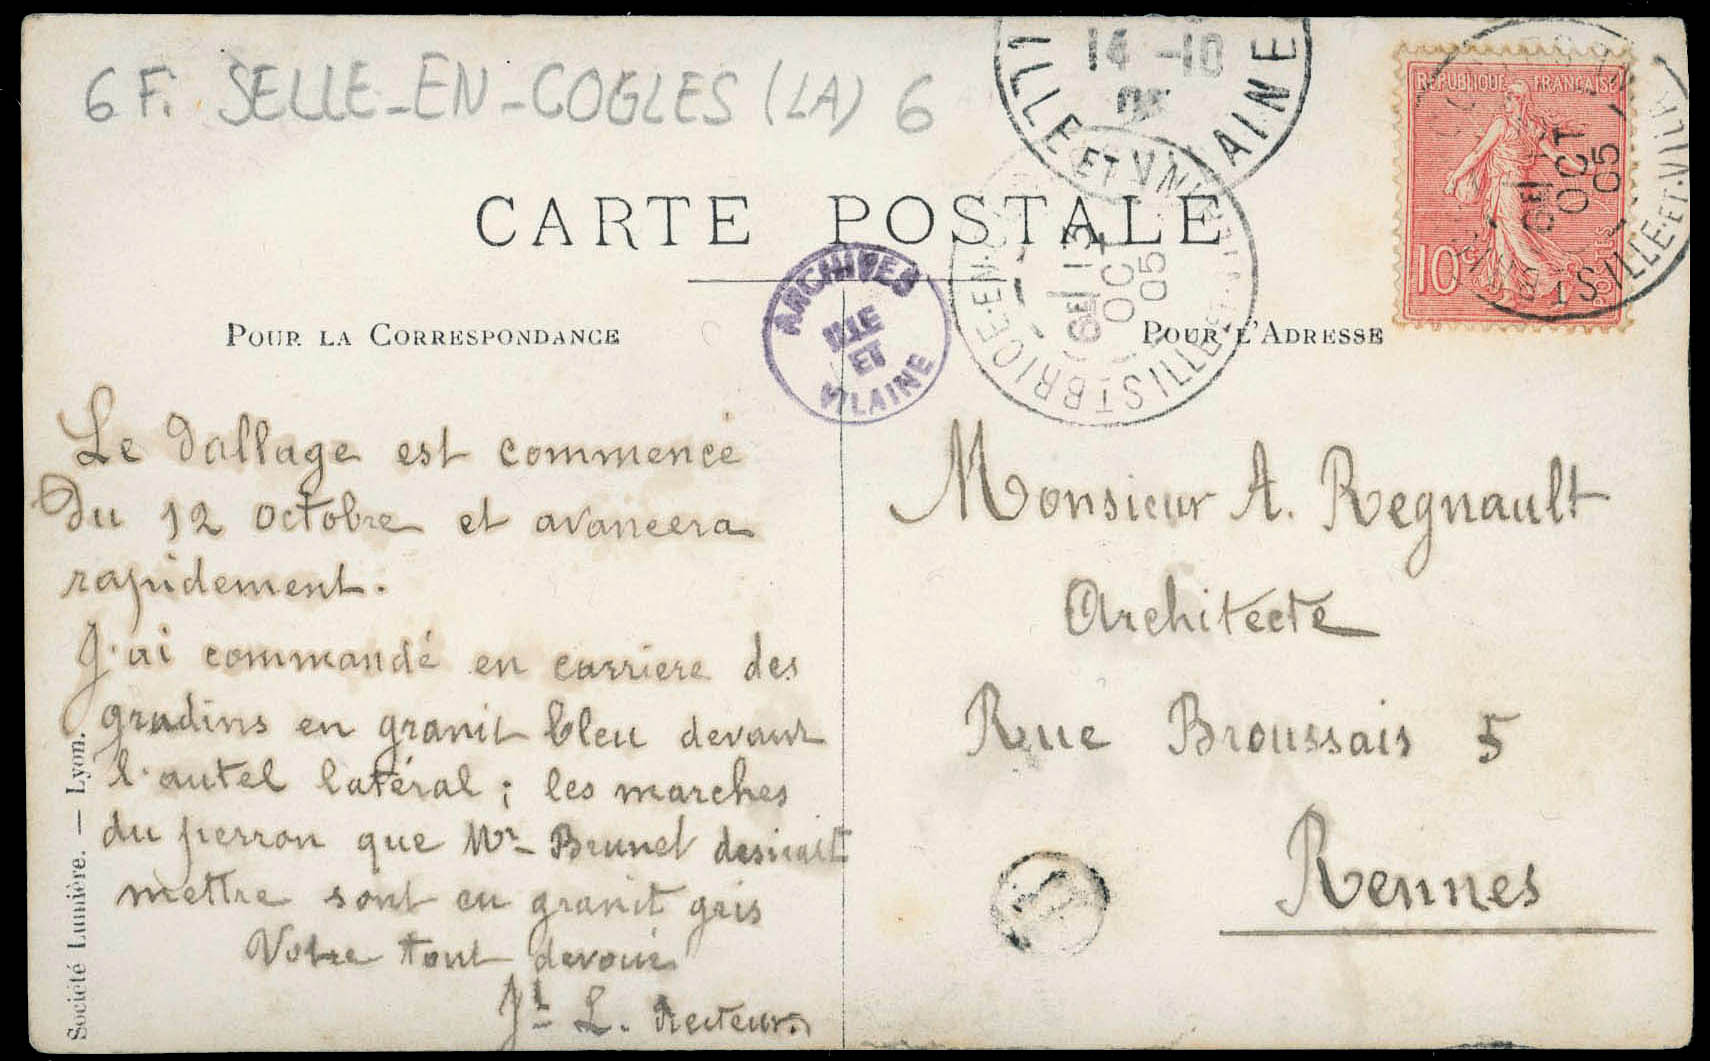 6 F. SELLE-EN-COGLES (LA) 6
14 -10
05
ILLE ET VILAINE
REPUBLIQUE FRANÇAISE
10
POSTES
OCT
05
ILLE-ET-VILNE
CARTE POSTALE
ARCHIVES
ILLE
ET
VILAINE
ST BRICE-EN-C
6E 13
OCT
05
ILLE-ET-V
POUR LA CORRESPONDANCE
POUR L'ADRESSE
Le dallage est commencé
du 12 octobre et avancera
rapidement.
J'ai commandé en carriere des
gradins en granit bleu devant
l'autel latéral ; les marches
du perron que Mr Brunel desirait
mettre sont en granit gris
Votre tout devoué
L. Recteur.
Monsieur A. Regnault
Architecte
Rue Broussais 5
Rennes
Société Lumière. — Lyon.